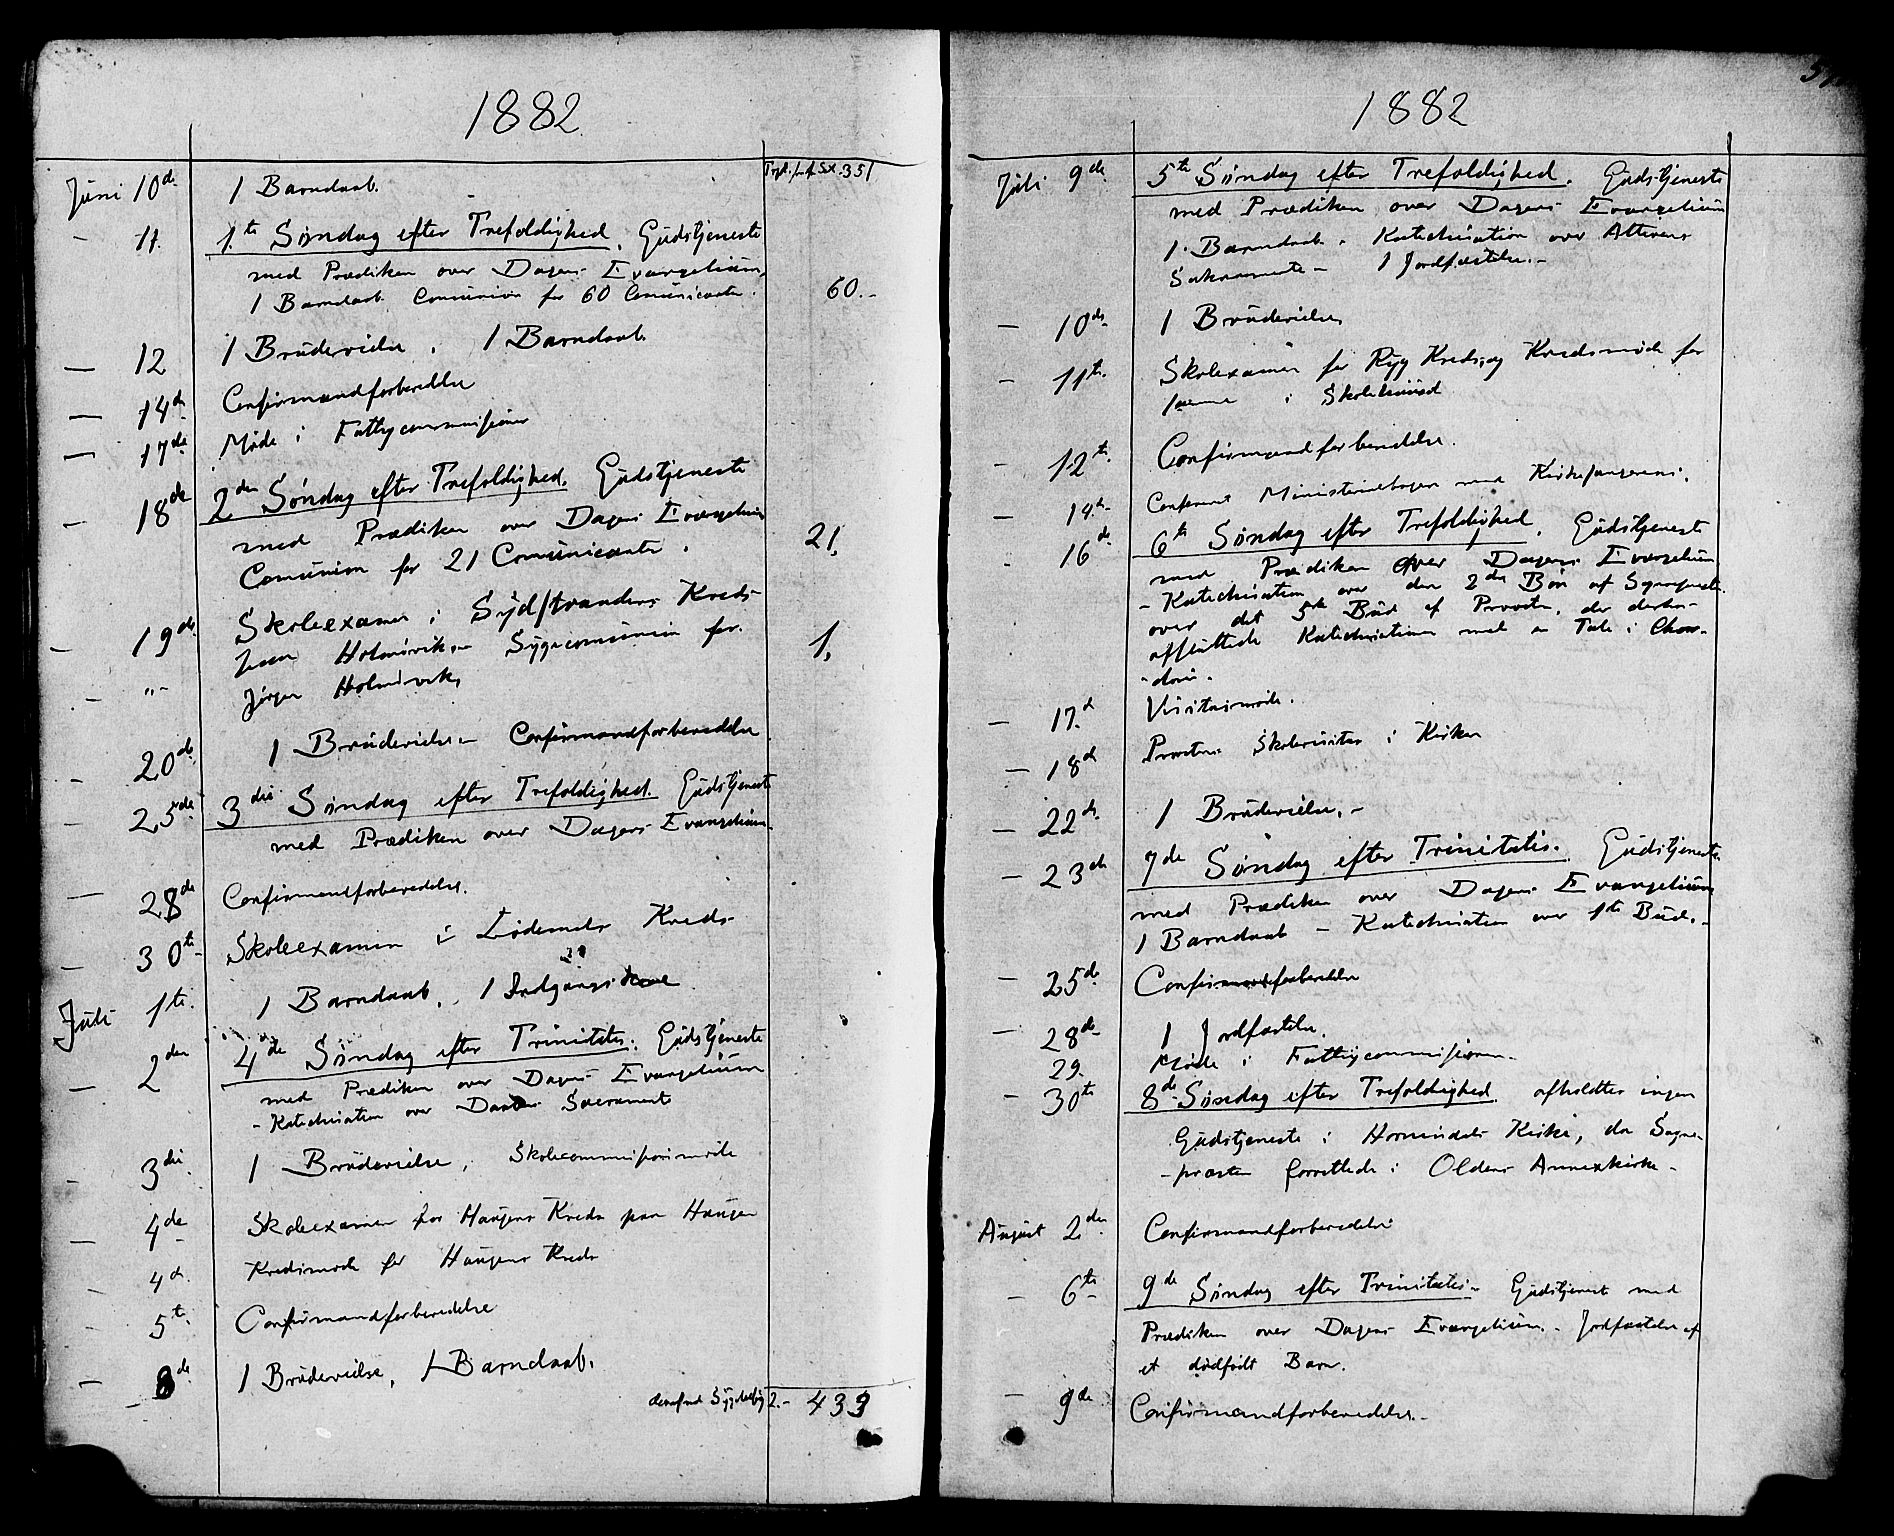 1882
Juni 10d. 1 Barndaab.
351
- 11. 1.te Søndag efter Trefoldighed. Gudstjeneste
med Prædiken over Dagens Evangelium,
1 Barndaab. Comunion for 60 Comunicanter. 60.-
- 12 1 Brudevielse. 1 Barndaab.
- 14de Confirmandforberedelse
- 17de Møde i Fattigcommisionen
- 18de 2den Søndag efter Trefoldighed. Gudstjeneste
med Prædiken over Dagens Evangelium
Comunion for 21 Comunicanter. 21.
- 19de Skoleexamen i Sydstrandens Kreds
paa Holmøviken Sygecomunion for 1,
- "- Jørgen Holmøvik,
- 20de 1 Brudevielse - Confirmandforberedelse
- 25de 3die Søndag efter Trefoldighed. Gudstjeneste
med Prædiken over Dagens Evangelium.
- 28de Confirmandforberedelse.
- 30te Skoleexamen i Lødemels Kreds
Juli 1te. 1 Barndaab, 1 Indgangskone
- 2den 4de Søndag efter Trinitatis. Gudstjeneste
med Prædiken over Dagens Evangelium
- Katechisation over Daabens Sacrament
- 3die 1 Brudevielse, Skolecommisionsmøde
- 4de Skoleexamen for Haugens Kreds paa Haugen
4de. Kredsmøde for Haugens Kreds
- 5te. Confirmandforberedelse
- 8de 1 Brudevielse, 1 Barndaab.
2.- 433
1882
Juli 9de. 5te Søndag efter Trefoldighed. Gudstjeneste
med Prædiken over Dagens Evangelium
1 Barndaab. Katechisation over Alterens
Sakramente - 1 Jordfæstelse. -
- 10de. 1 Brudevielse,
- 11te. Skoleexamen for Ryg Kreds, og Kredsmøde for
samme i Skolehuset
- 12te. Confirmandforberedelse.
- 14de. Confereret Ministerialbogen med Kirkesangerens.
- 16de 6te Søndag efter Trefoldighed. Gudstjeneste
med Prædiken over Dagens Evangelium
- Katechisation over den 2den Bøn af Sognepresten
over det 5te Bud af Provsten, der derhos
afsluttede Katechisationen med en Tale i Chor-
-døren.
- 17d. Visitasmøde.
- 18d Provstens Skolevisitas i Kirken
- 22de. 1 Brudevielse. -
- 23de 7de Søndag efter Trinitatis. Gudstjeneste
med Prædiken over Dagens Evangelium
1 Barndaab - Katechisation over 1te Bud. -
- 25de Confirmandforberedelse
- 28de 1 Jordfæstelse.
29. Møde i Fattigcommisionen. -
- 30te 8de Søndag efter Trefoldighed afholdtes ingen
Gudstjeneste i Hornindals Kirke, da Sogne-
-præsten forrettede i Oldens Annexkirke -
August 2den. Confirmandforberedelse
- 6te 9de Søndag efter Trinitatis - Gudstjeneste med
Prædiken over Dagens Evangelium. - Jordfæstelse af
et dødfødt Barn.
- 9de Confirmandforberedelse. -